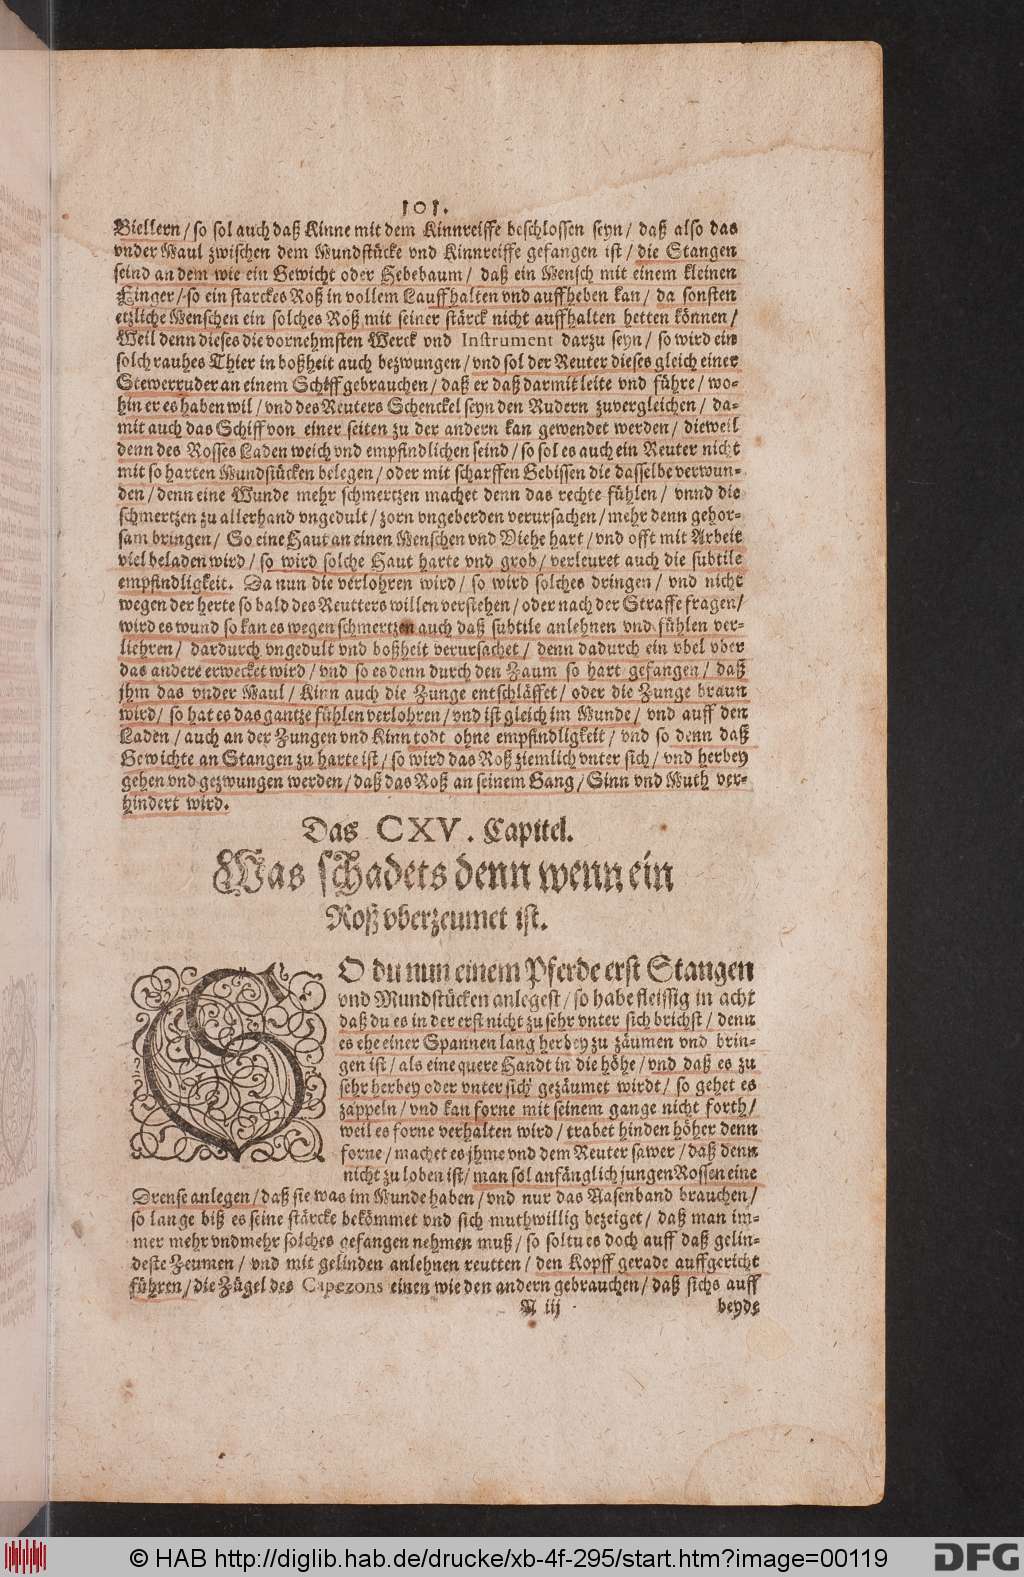 101.
Biellern / so sol auch daß Kinne mit dem Kinnreiffe beschlossen seyn / daß also das
vnder Maul zwischen dem Mundstücke vnd Kinnreiffe gefangen ist / die Stangen
seind an dem wie ein Gewicht oder Hebebaum / daß ein Mensch mit einem kleinen
Finger / so ein starckes Roß in vollem Lauff halten vnd auffheben kan / da sonsten
etzliche Menschen ein solches Roß mit seiner stärck nicht auffhalten hetten können /
Weil denn dieses die vornehmsten Werck vnd Instrument darzu seyn / so wird ein
solch rauhes Thier in boßheit auch bezwungen / vnd sol der Reuter dieses gleich einer
Stewerruder an einem Schiff gebrauchen / daß er daß darmit leite vnd führe / wo-
hin er es haben wil / vnd des Reuters Schenckel seyn den Rudern zuvergleichen / da-
mit auch das Schiff von einer seiten zu der andern kan gewendet werden / dieweil
denn des Rosses Laden weich vnd empfindlichen seind / so sol es auch ein Reuter nicht
mit so harten Mundstücken belegen / oder mit scharffen Gebissen die dasselbe verwun-
den / denn eine Wunde mehr schmertzen machet denn das rechte fühlen / vnnd die
schmertzen zu allerhand vngedult / zorn vngeberden verursachen / mehr denn gehor-
sam bringen / So eine Haut an einen Menschen vnd Viehe hart / vnd offt mit Arbeit
viel beladen wird / so wird solche Haut harte vnd grob / verleuret auch die subtile
empfindligkeit. Da nun die verlohren wird / so wird solches dringen / vnd nicht
wegen der herte so bald des Reutters willen verstehen / oder nach der Straffe fragen /
wird es wund so kan es wegen schmertzen auch daß subtile anlehnen vnd fühlen ver-
liehren / dardurch vngedult vnd boßheit verursachet / denn dadurch ein vbel vber
das andere erwecket wird / vnd so es denn durch den Zaum so hart gefangen / daß
jhm das vnder Maul / Kinn auch die Zunge entschläffet / oder die Zunge braun
wird / so hat es das gantze fühlen verlohren / vnd ist gleich im Munde / vnd auff den
Laden / auch an der Zungen vnd Kinn todt ohne empfindligkeit / vnd so denn daß
Gewichte an Stangen zu harte ist / so wird das Roß ziemlich vnter sich / vnd herbey
gehen vnd gezwungen werden / daß das Roß an seinem Gang / Sinn vnd Muth ver-
hindert wird.
Das CXV. Capitel.
Was schadets denn wenn ein
Roß vberzeumet ist.
SO du nun einem Pferde erst Stangen
vnd Mundstücken anlegest / so habe fleissig in acht
daß du es in der erst nicht zu sehr vnter sich brichst / denn
es ehe einer Spannen lang herbey zu zäumen vnd brin-
gen ist / als eine quere Handt in die höhe / vnd daß es zu
sehr herbey oder vnter sich gezäumet wirdt / so gehet es
zappeln / vnd kan forne mit seinem gange nicht forth /
weil es forne verhalten wird / trabet hinden höher denn
forne / machet es jhme vnd dem Reuter sawer / daß denn
nicht zu loben ist / man sol anfänglich jungen Rossen eine
Drense anlegen / daß sie was im Munde haben / vnd nur das Nasenband brauchen /
so lange biß es seine stärcke bekömmet vnd sich muthwillig bezeiget / daß man im-
mer mehr vnd mehr solches gefangen nehmen muß / so soltu es doch auff daß gelin-
deste Zeumen / vnd mit gelinden anlehnen reutten / den Kopff gerade auffgericht
führen / die Zügel des Capezons einen wie den andern gebrauchen / daß sichs auff
N iij
beyde
© HAB http://diglib.hab.de/drucke/xb-4f-295/start.htm?image=00119
DFG